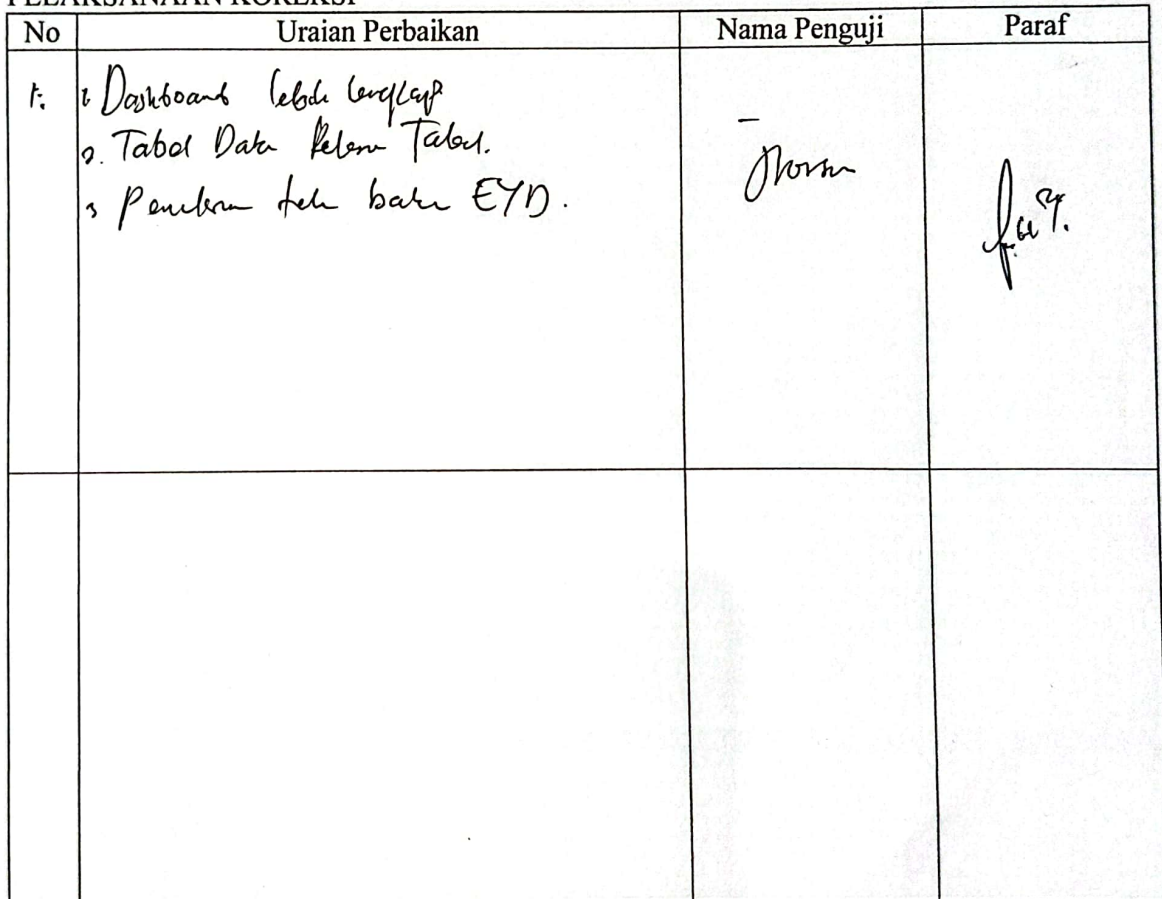 PELAKSANAAN KOREKSI
No Uraian Perbaikan Nama Penguji Paraf
1. 1 Dashboard lebih lengkap
2. Tabel Data Tabel.
3 EYD.